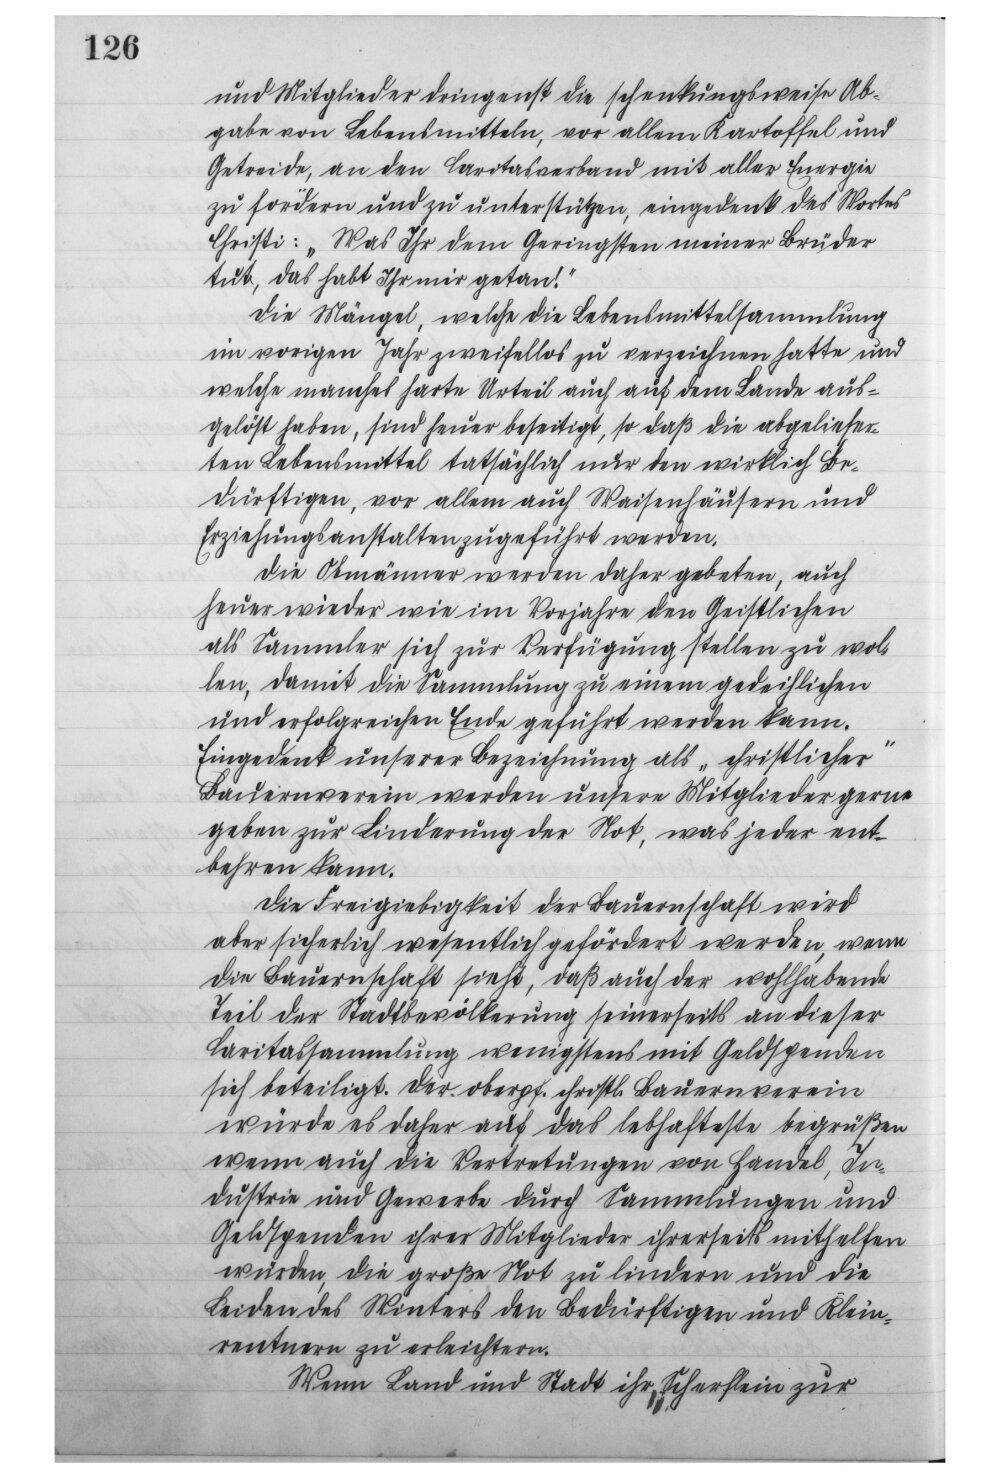 126
und Mitglieder dringenst die schenkungsweise Ab-
gabe von Lebensmitteln, vor allem Kartoffel und
Getreide, an den Caritasverband mit aller Energie
zu fördern und zu unterstützen, eingedenk des Wortes
Christi: „Was Ihr dem Geringsten meiner Brüder
tut, das habt Ihr mir getan!"
Die Mängel, welche die Lebensmittelsammlung
im vorigen Jahr zweifellos zu verzeichnen hatte und
welche manches harte Urteil auch auf dem Lande aus-
gelöst haben, sind heuer beseitigt, so daß die abgeliefer-
ten Lebensmittel tatsächlich nur den wirklich Be-
dürftigen, vor allem auch Waisenhäusern und
Erziehungsanstalten zugeführt werden.
Die Obmänner werden daher gebeten, auch
heuer wieder wie im Vorjahre den Geistlichen
als Sammler sich zur Verfügung stellen zu wol-
len, damit die Sammlung zu einem gedeihlichen
und erfolgreichen Ende geführt werden kann.
Eingedenk unserer Bezeichnung als „christlicher"
Bauernverein werden unsere Mitglieder gerne
geben zur Linderung der Not, was jeder ent-
behren kann.
Die Freigiebigkeit der Bauernschaft wird
aber sicherlich wesentlich gefördert werden, wenn
die Bauernschaft sieht, daß auch der wohlhabende
Teil der Stadtbevölkerung seinerseits an dieser
Caritassammlung wenigstens mit Geldspenden
sich beteiligt. Der oberpf. christl. Bauernverein
würde es daher auf das lebhafteste begrüßen
wenn auch die Vertretungen von Handel, In-
dustrie und Gewerbe durch Sammlungen und
Geldspenden ihrer Mitglieder ihrerseits mithelfen
würden, die große Not zu lindern und die
Leiden des Winters den Bedürftigen und Klein-
rentnern zu erleichtern.
Wenn Land und Stadt ihr „Scherflein zur